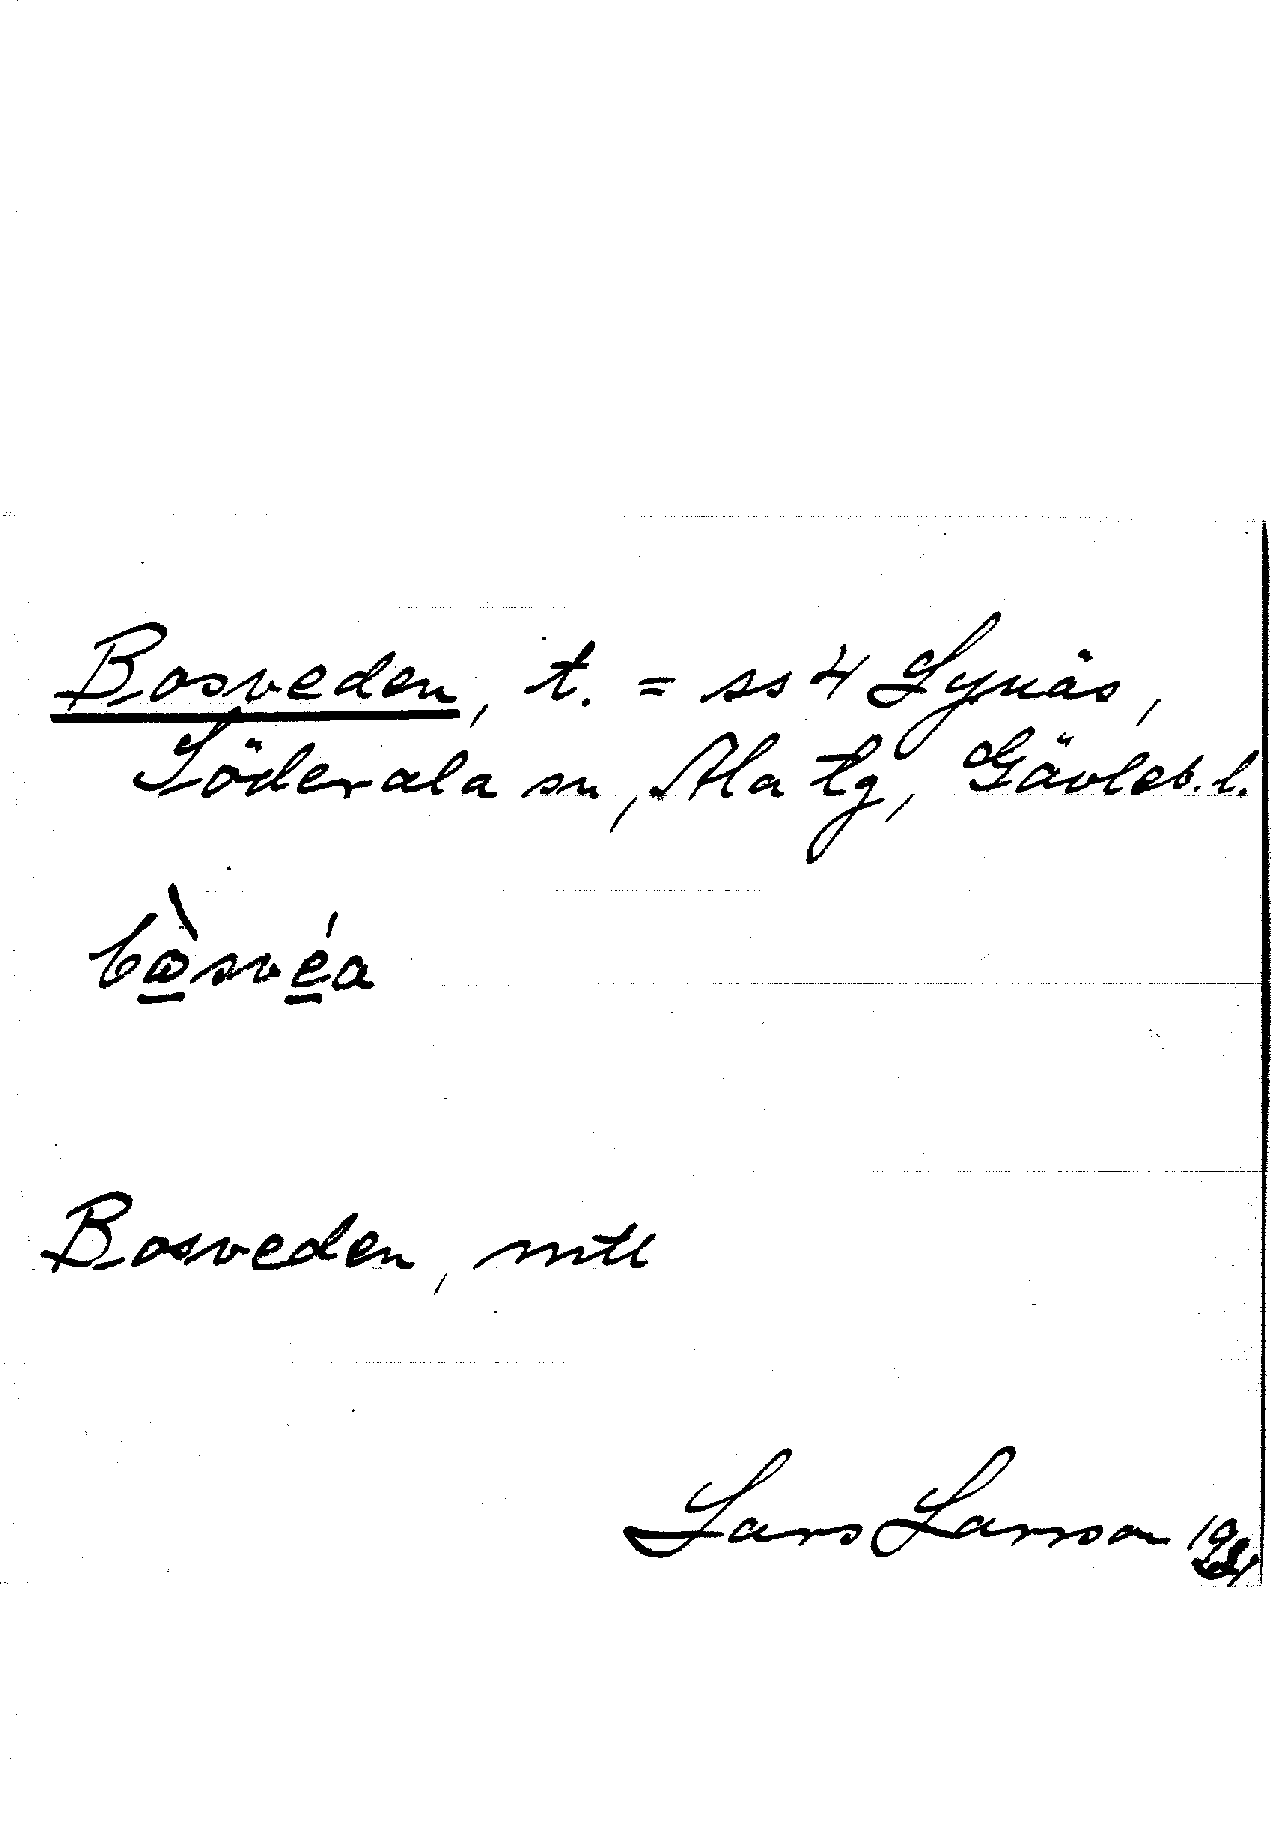 Bosveden, t. = ss 4 Lynäs,
Söderala sn, Ala tg, Gävleb. l.
bòsvéa
Bosveden, mtl
Lars Larsson